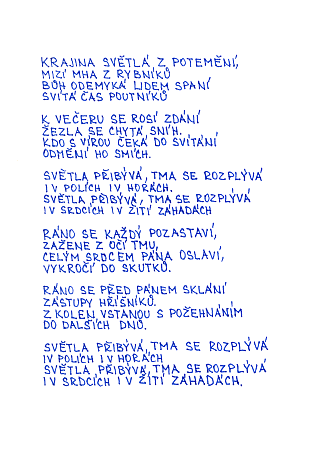 KRAJINA SVĚTLÁ Z POTEMĚNÍ,
MIZÍ MHA Z RYBNÍKŮ
BŮH ODEMYKÁ LIDEM SPANÍ
SVÍTÁ ČAS POUTNÍKŮ
K VEČERU SE ROSÍ ZDÁNÍ
ŽEZLA SE CHYTÁ SNÍH.
KDO S VÍROU ČEKÁ DO SVÍTÁNÍ
ODMĚNÍ HO SMÍCH.
SVĚTLA PŘIBÝVÁ, TMA SE ROZPLÝVÁ
I V POLÍCH I V HORÁCH.
SVĚTLA PŘIBÝVÁ, TMA SE ROZPLÝVÁ
I V SRDCÍCH I V ŽITÍ ZÁHADÁCH
RÁNO SE KAŽDÝ POZASTAVÍ,
ZAŽENE Z OČÍ TMU,
CELÝM SRDCEM PÁNA OSLAVÍ,
VYKROČÍ DO SKUTKŮ.
RÁNO SE PŘED PÁNEM SKLÁNÍ
ZÁSTUPY HŘÍŠNÍKŮ.
Z KOLEN VSTANOU S POŽEHNÁNÍM
DO DALŠÍCH DNŮ.
SVĚTLA PŘIBÝVÁ, TMA SE ROZPLÝVÁ
I V POLÍCH I V HORÁCH
SVĚTLA PŘIBÝVÁ, TMA SE ROZPLÝVÁ
I V SRDCÍCH I V ŽITÍ ZÁHADÁCH.